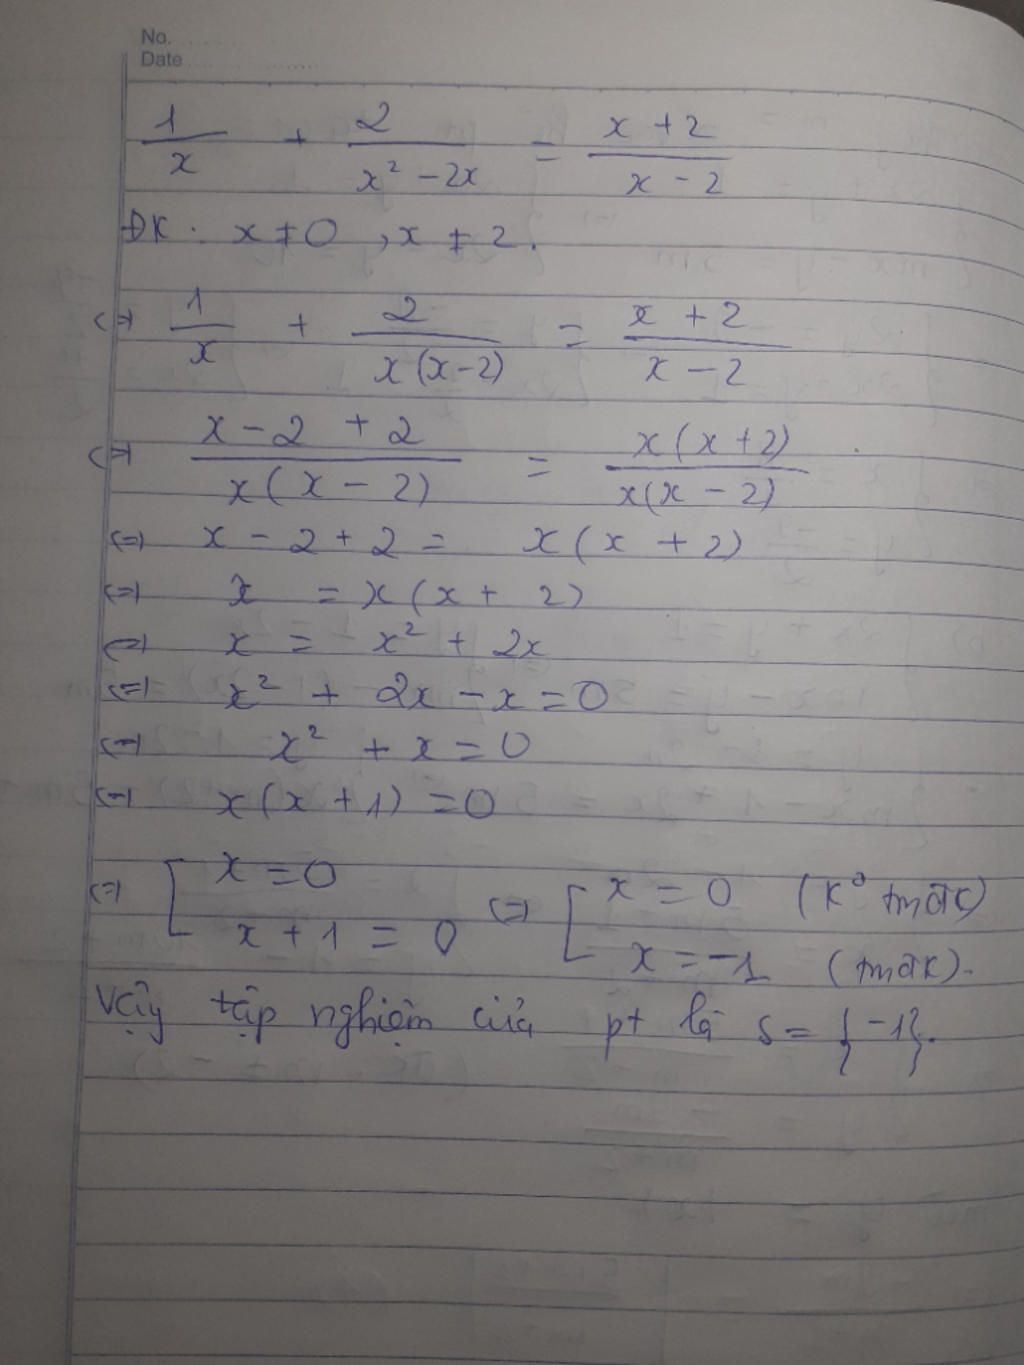 No.
Date
1/x + 2/(x² - 2x) = (x + 2)/(x - 2)
ĐK: x ≠ 0, x ≠ 2.
(=) 1/x + 2/(x(x-2)) = (x + 2)/(x - 2)
(=) (x - 2 + 2)/(x(x - 2)) = (x(x+2))/(x(x - 2))
(=) x - 2 + 2 = x(x + 2)
(=) x = x(x + 2)
(=) x = x² + 2x
(=) x² + 2x - x = 0
(=) x² + x = 0
(=) x(x + 1) = 0
(=) [ x = 0 (=) [ x = 0 (k° tmđk)
x + 1 = 0 x = -1 (tmđk).
Vậy tập nghiệm của pt là S = {-1}.